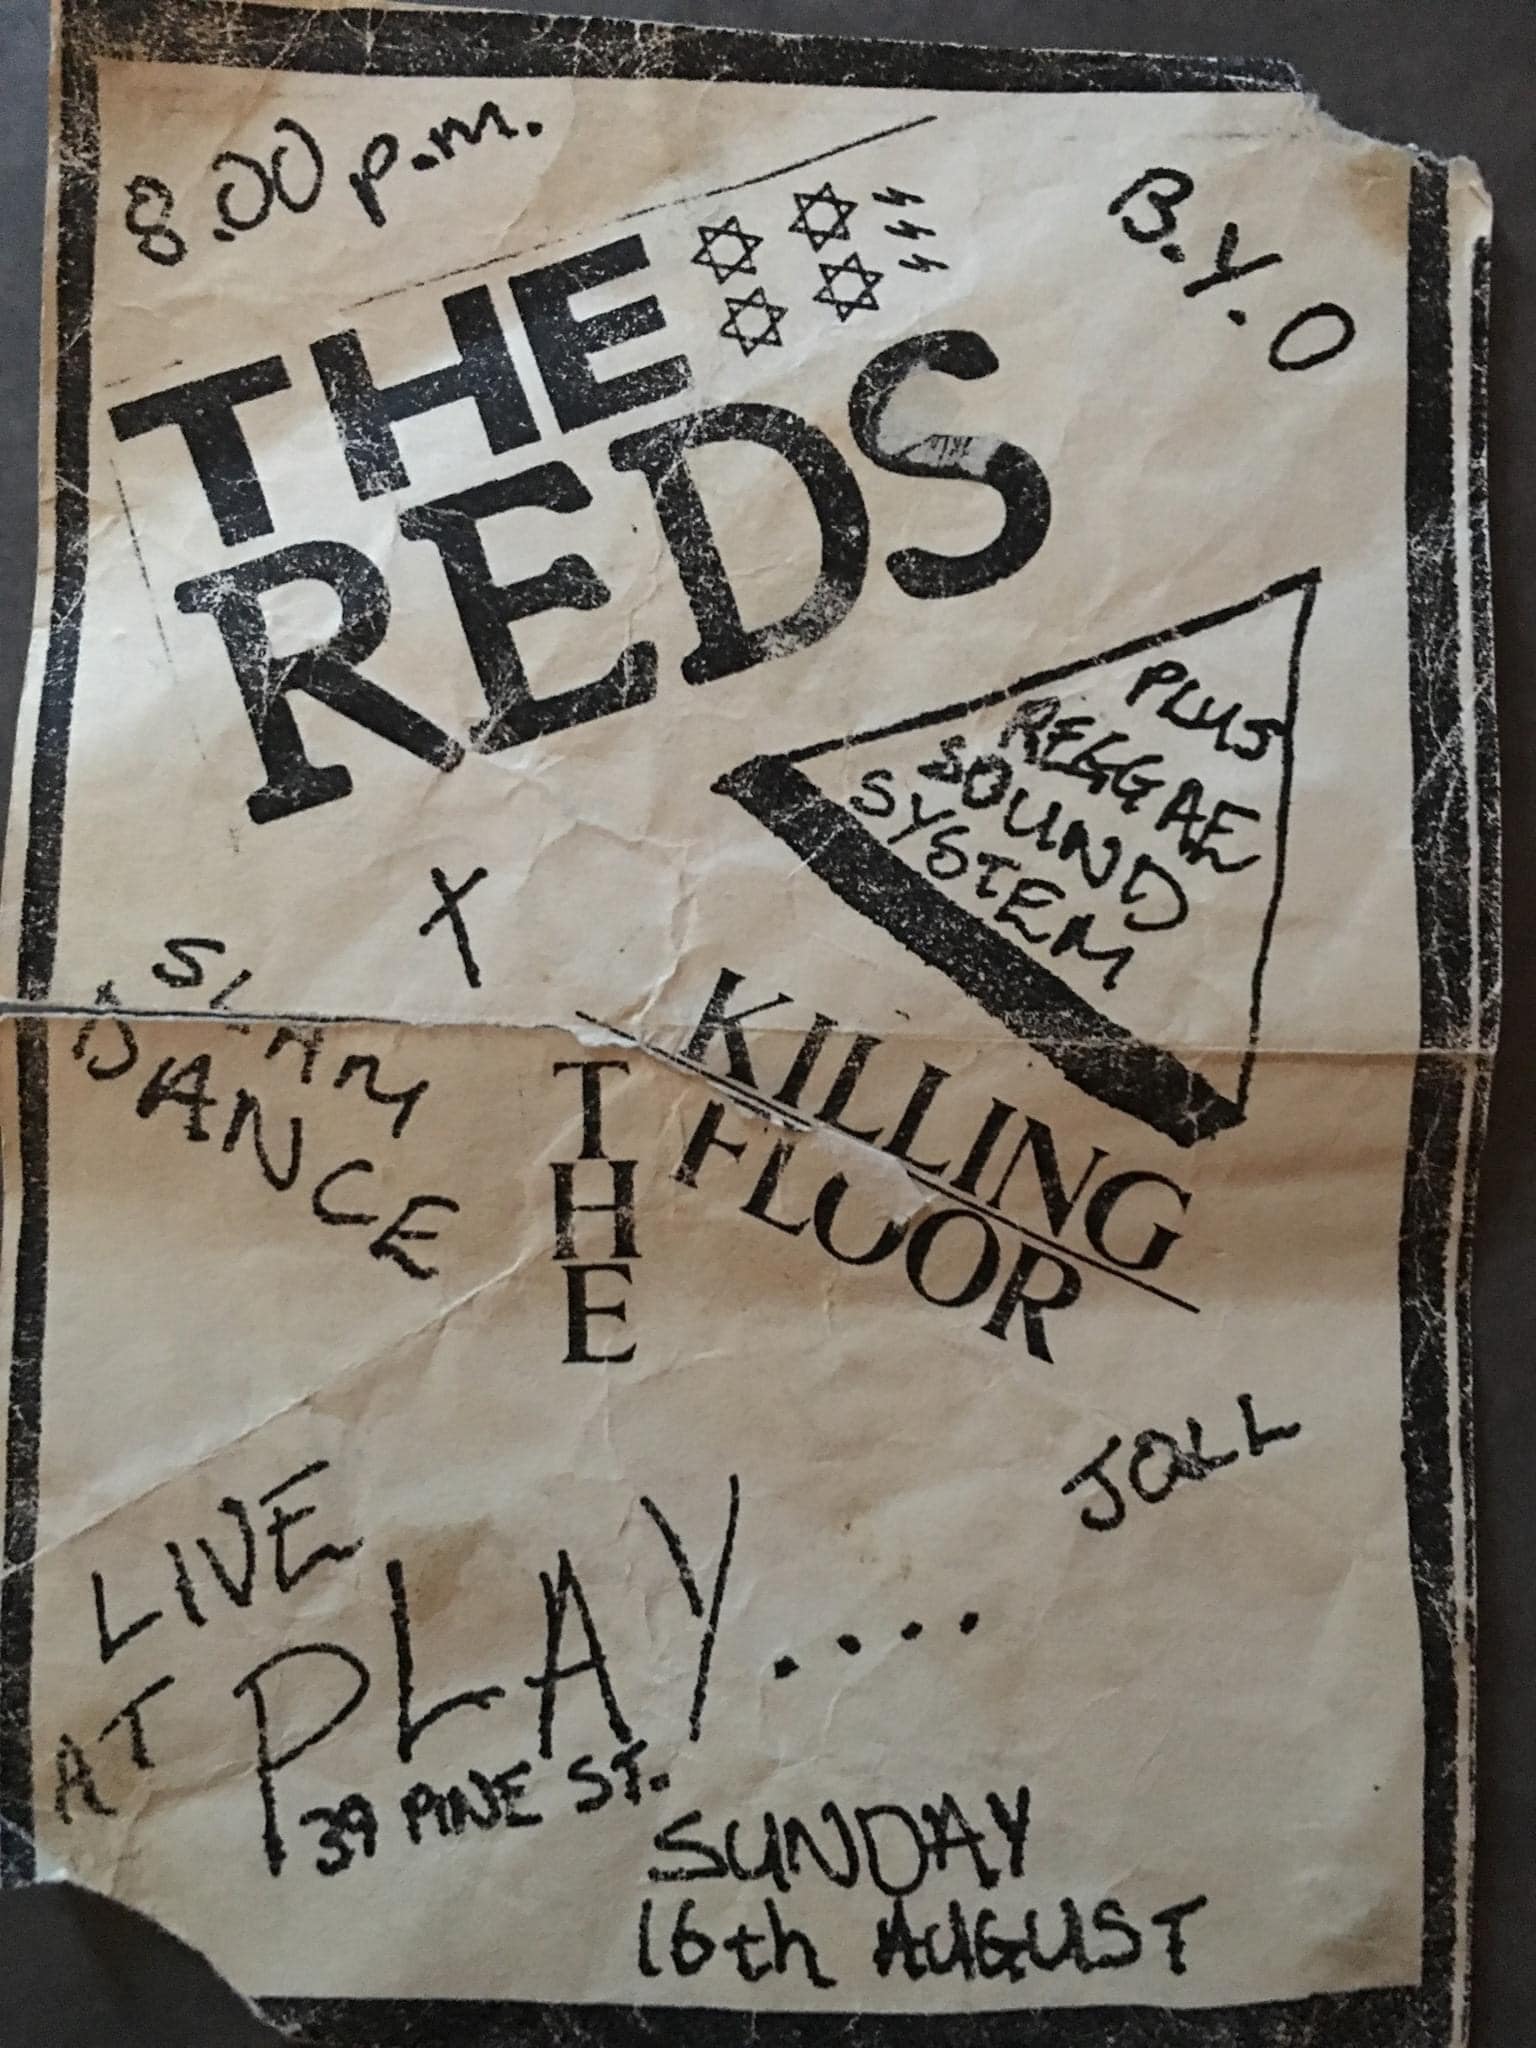 8.00 p.m.
B.Y.O
THE
REDS
PLUS
REGGAE
SOUND
SYSTEM
X
SLAM
DANCE
THE
KILLING
FLOOR
JOLL
LIVE
AT
PLAY....
39 PINE ST.
SUNDAY
16th AUGUST